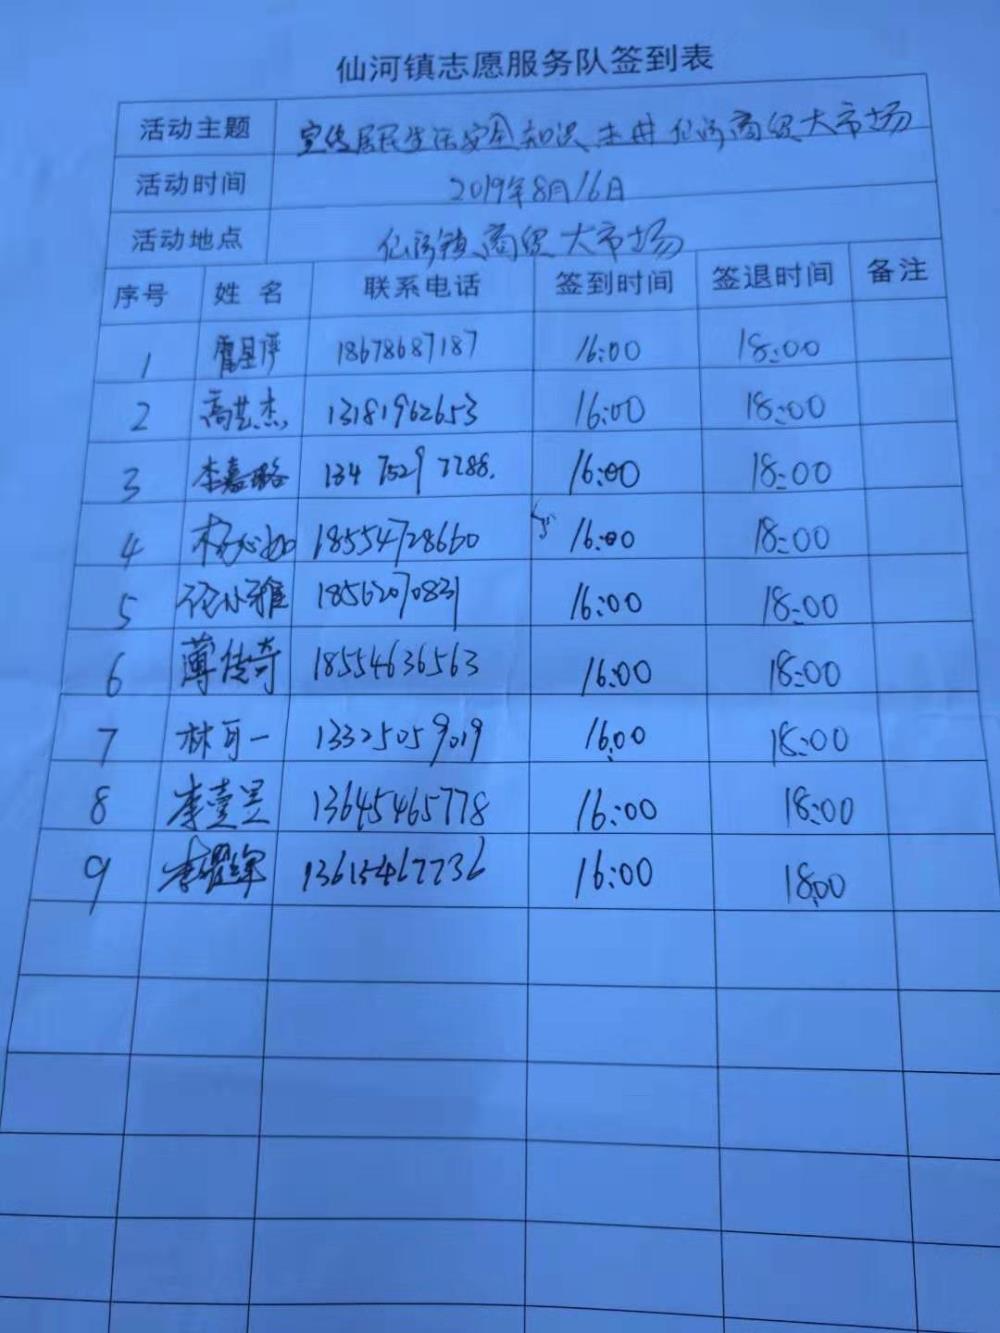 仙河镇志愿服务队签到表
活动主题 宣传居民生活安全知识走进仙河商贸大市场
活动时间 2019年8月16日
活动地点 仙河镇商贸大市场
序号 姓名 联系电话 签到时间 签退时间 备注
1 18678687187 16:00 18:00
2 高艺杰 13181962653 16:00 18:00
3 李嘉璐 134 7529 7288. 16:00 18:00
4 杨心如 18554728660 16:00 18:00
5 16:00 18:00
6 薄传奇 18554636563 16:00 18:00
7 林可一 13325059019 16:00 18:00
8 李壹昱 13645465778 16:00 18:00
9 16:00 18:00